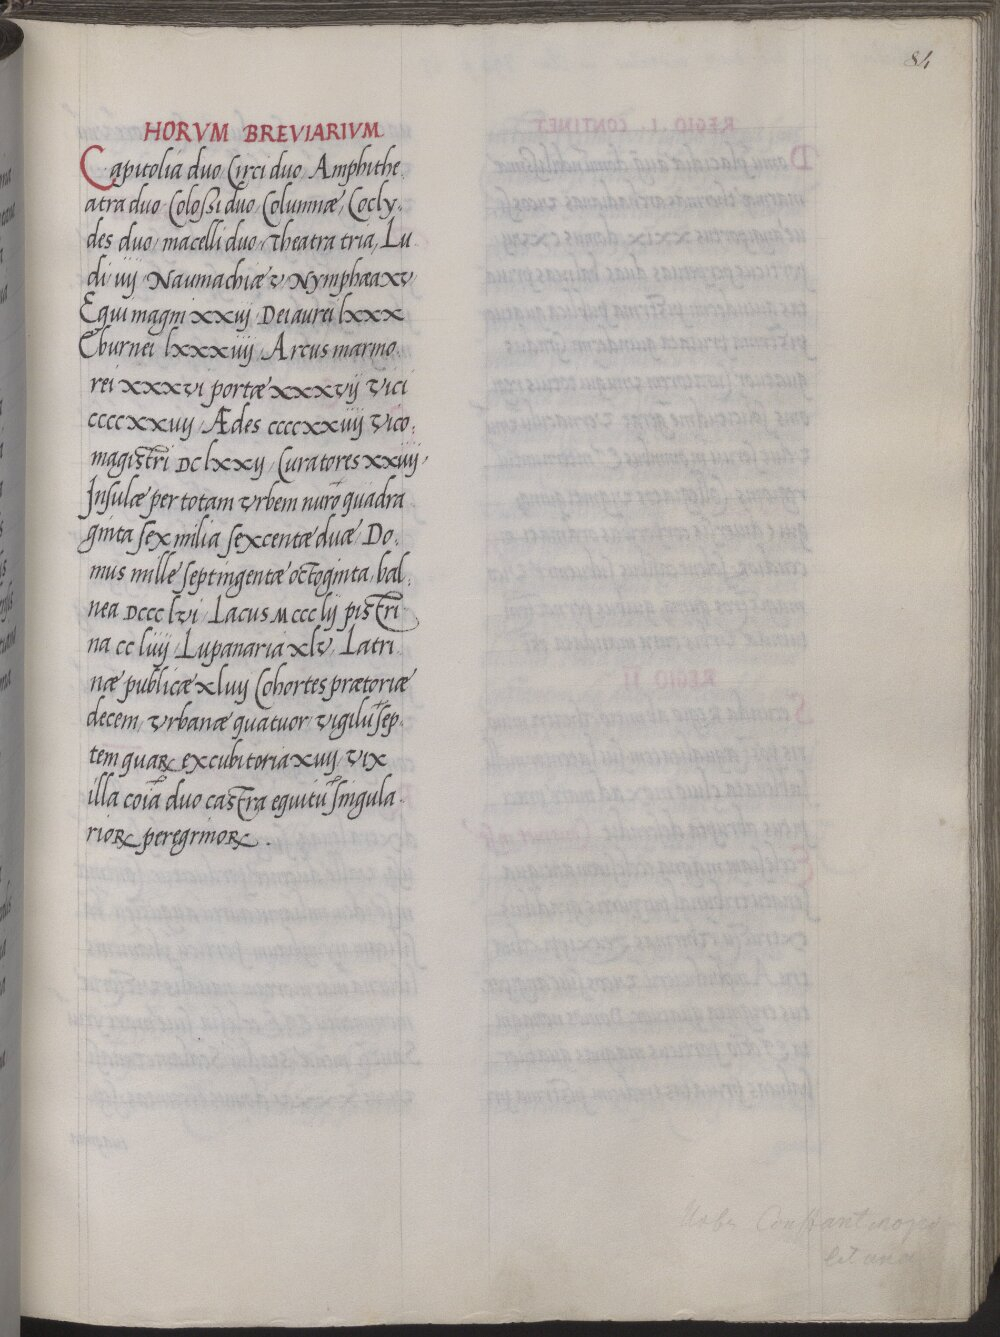 84
HORVM BREVIARIVM
Capitolia duo Circi duo Amphithe
atra duo Colossi duo Columnæ Cocly-
des duo macelli duo theatra tria, Lu
di iiij Naumachiæ v Nymphæa xv
Equi magni xxij Dei aurei lxxx
Eburnei lxxxiiij Arcus marmo
rei xxxvi portæ xxxvij vici
ccccxxiiij Ædes ccccxxiiij vico-
magistri DClxxij Curatores xxiiij
Insulæ per totam vrbem nuro quadra
ginta sex milia sexcentæ duæ Do-
mus mille septingentæ octoginta, bal-
nea DCCClvi Lacus MCCClij pistri-
na ccliiij Lupanaria xlv Latri-
næ publicæ xliiij Cohortes prætoriæ
decem, vrbanæ quatuor vigilū sep-
tem quaꝝ excubitoria xiiij vix
illa coīa duo castra equitū singula-
rioꝝ peregrinoꝝ.
Urbs Constantinopo
litana